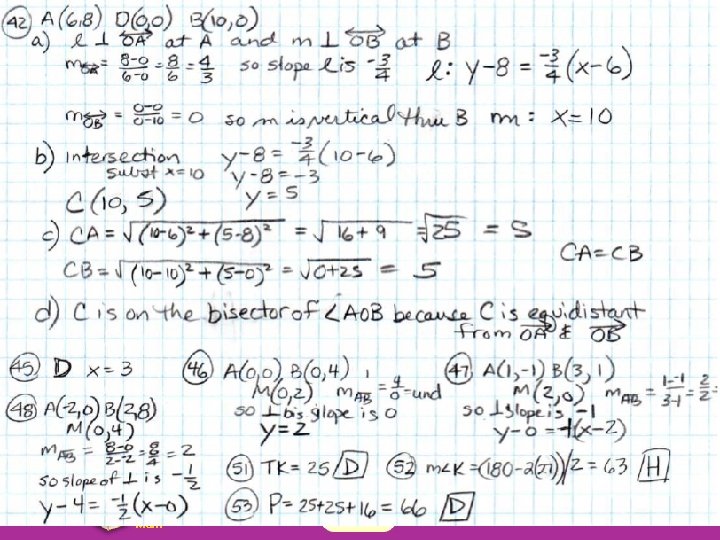 42 A(6,8) O(0,0) B(10,0)
a) l ⊥ OA at A and m ⊥ OB at B
m OA = 8-0/6-0 = 8/6 = 4/3 so slope l is -3/4 l: y-8 = -3/4(x-6)
m OB = 0-0/0-10 = 0 so m is vertical thru B m: x=10
b) intersection y-8 = -3/4(10-6)
subst x=10 y-8=-3
C(10,5) y=5
c) CA = √(10-6)²+(5-8)² = √16+9 = √25 = 5
CA=CB
CB = √(10-10)²+(5-0)² = √0+25 = 5
d) C is on the bisector of ∠AOB because C is equidistant
from OA & OB
45 D x=3
46 A(0,0) B(0,4)
M(0,2) m AB = 4/0 = und
so ⊥ bis slope is 0
y=2
47 A(1,-1) B(3,1)
M(2,0) m AB = 1--1/3-1 = 2/2 =
so ⊥ slope is -1
y-0=-1(x-2)
48 A(-2,0) B(2,8)
M(0,4)
m AB = 8-0/2--2 = 8/4 = 2
so slope of ⊥ is -1/2
y-4 = -1/2(x-0)
51 TK=25 D
52 m∠K=(180-2(27))/2=63 H
53 P=25+25+16=66 D